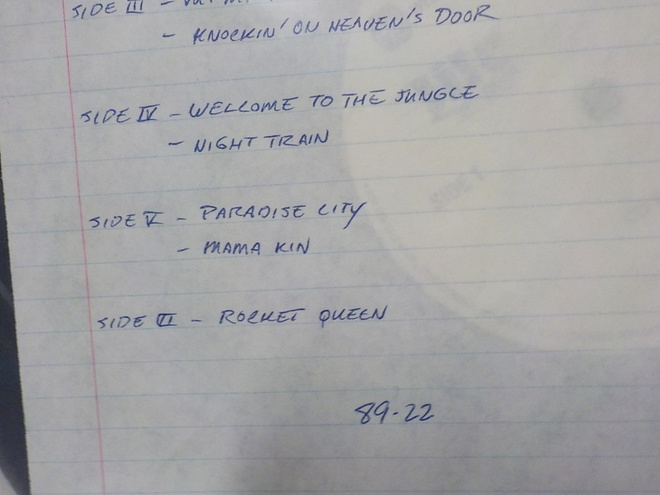 SIDE III -
- KNOCKIN' ON HEAVEN'S DOOR
SIDE IV - WELCOME TO THE JUNGLE
- NIGHT TRAIN
SIDE V - PARADISE CITY
- MAMA KIN
SIDE VI - ROCKET QUEEN
89-22